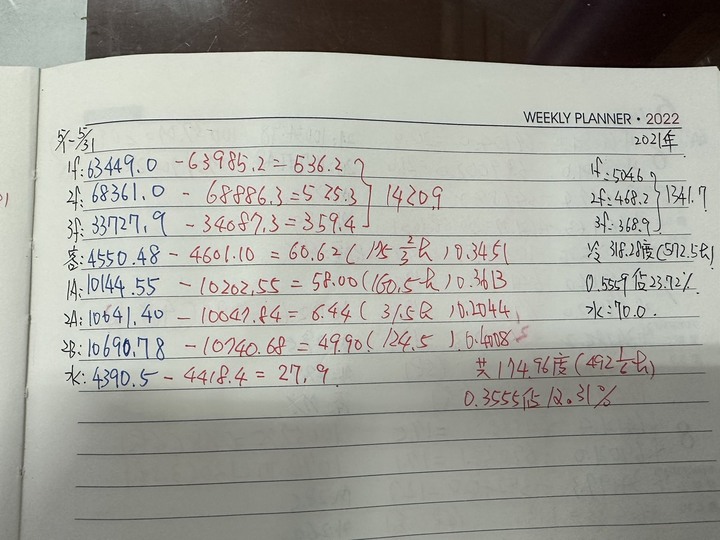 WEEKLY PLANNER • 2022
5/1-5/31
2021年
1f:63449.0 -63985.2=536.2
2f:68361.0 -68886.3=525.3
3f:33727.9 -34087.3=359.4
1420.9
客:4550.48 -4601.10 =60.62(175 2/3h)0.3451
1A:10144.55 -10202.55=58.00(160.5h)0.3613
2A:10641.40 -10047.84=6.44(31.5h)0.2044
2B:10690.78 -10740.68=49.90(124.5)0.4008
水:4390.5 -4418.4=27.9
共174.96度(492 1/6h)
0.3555佔12.31%
1f:504.6
2f:468.2
3f:368.9
1341.7
冷318.28度(572.5h)
0.5559佔23.72%
水:70.0